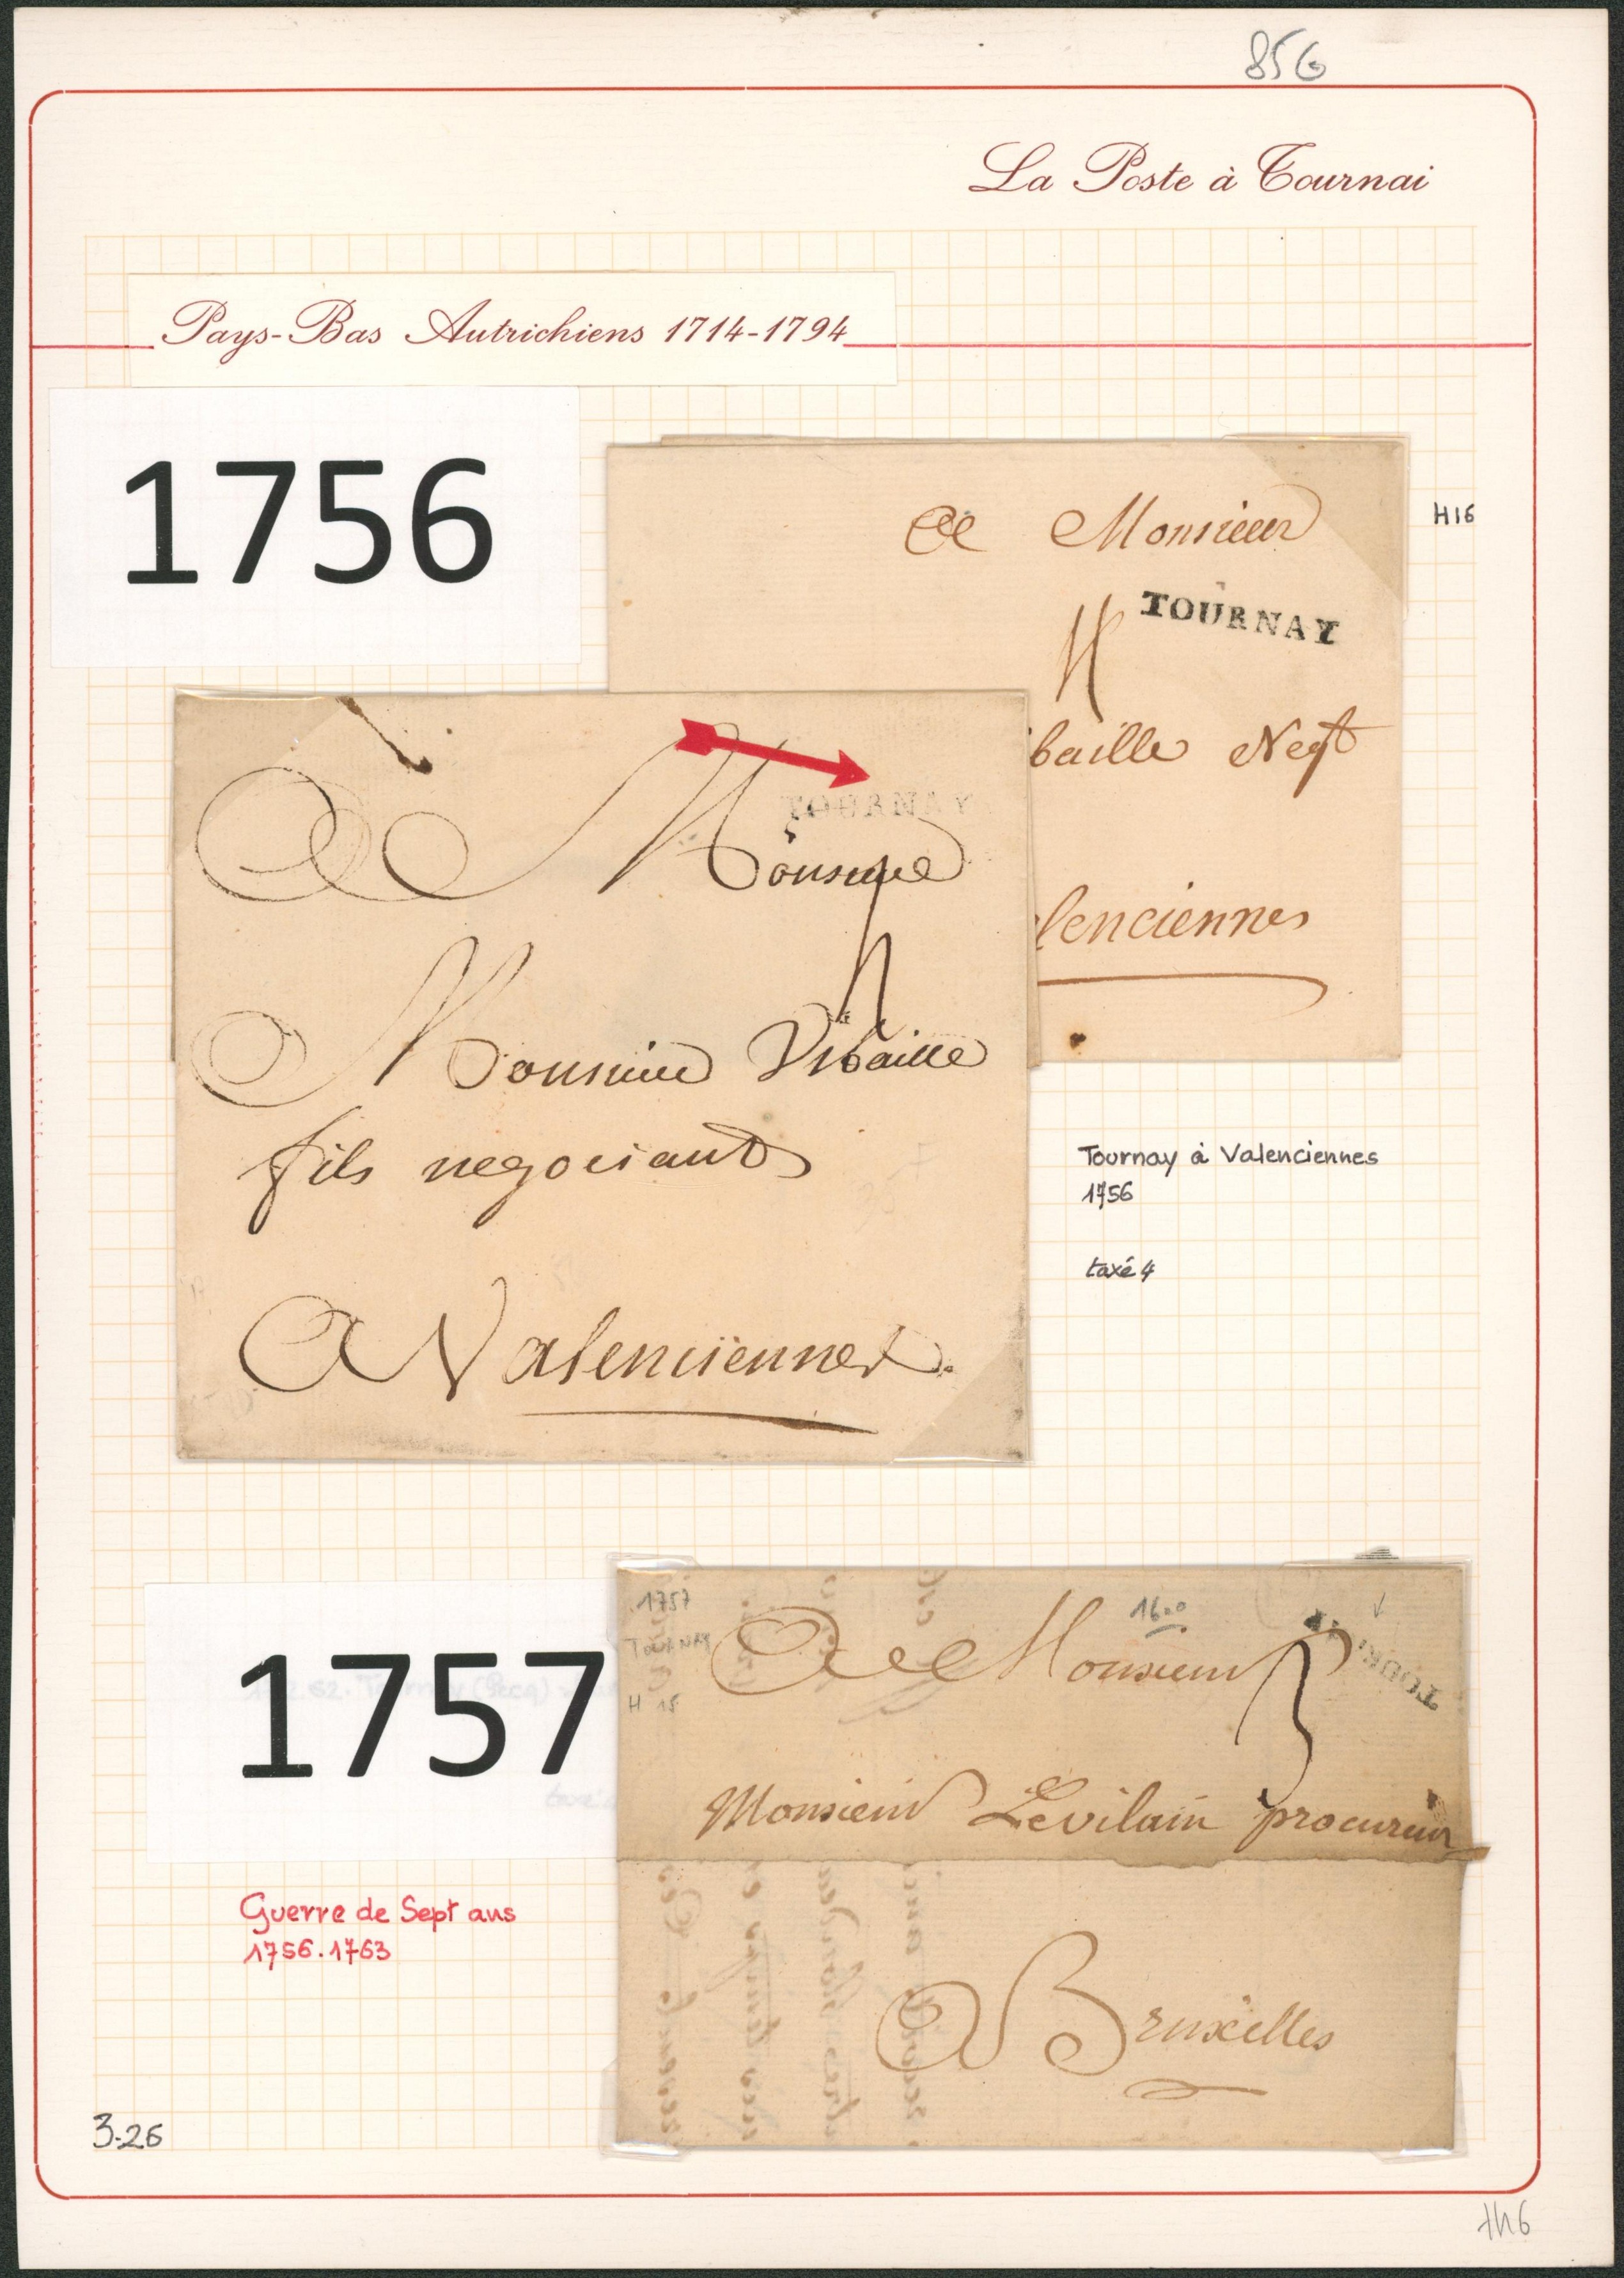 856
La Poste à Tournai
Pays-Bas Autrichiens 1714-1794
1756
H16
A Monsieur
TOURNAY
4
baille Negt
lenciennes
TOURNAY
A Monsieur
4
Monsieur Vibaille
fils negociant
A Valenciennes.
Tournay à Valenciennes
1756
taxé 4
1757
1757
TOURNAY
H 15
1600
A Monsieur
3
Monsieur Levilain procureur
A Bruxelles
Guerre de Sept ans
1756.1763
3.26